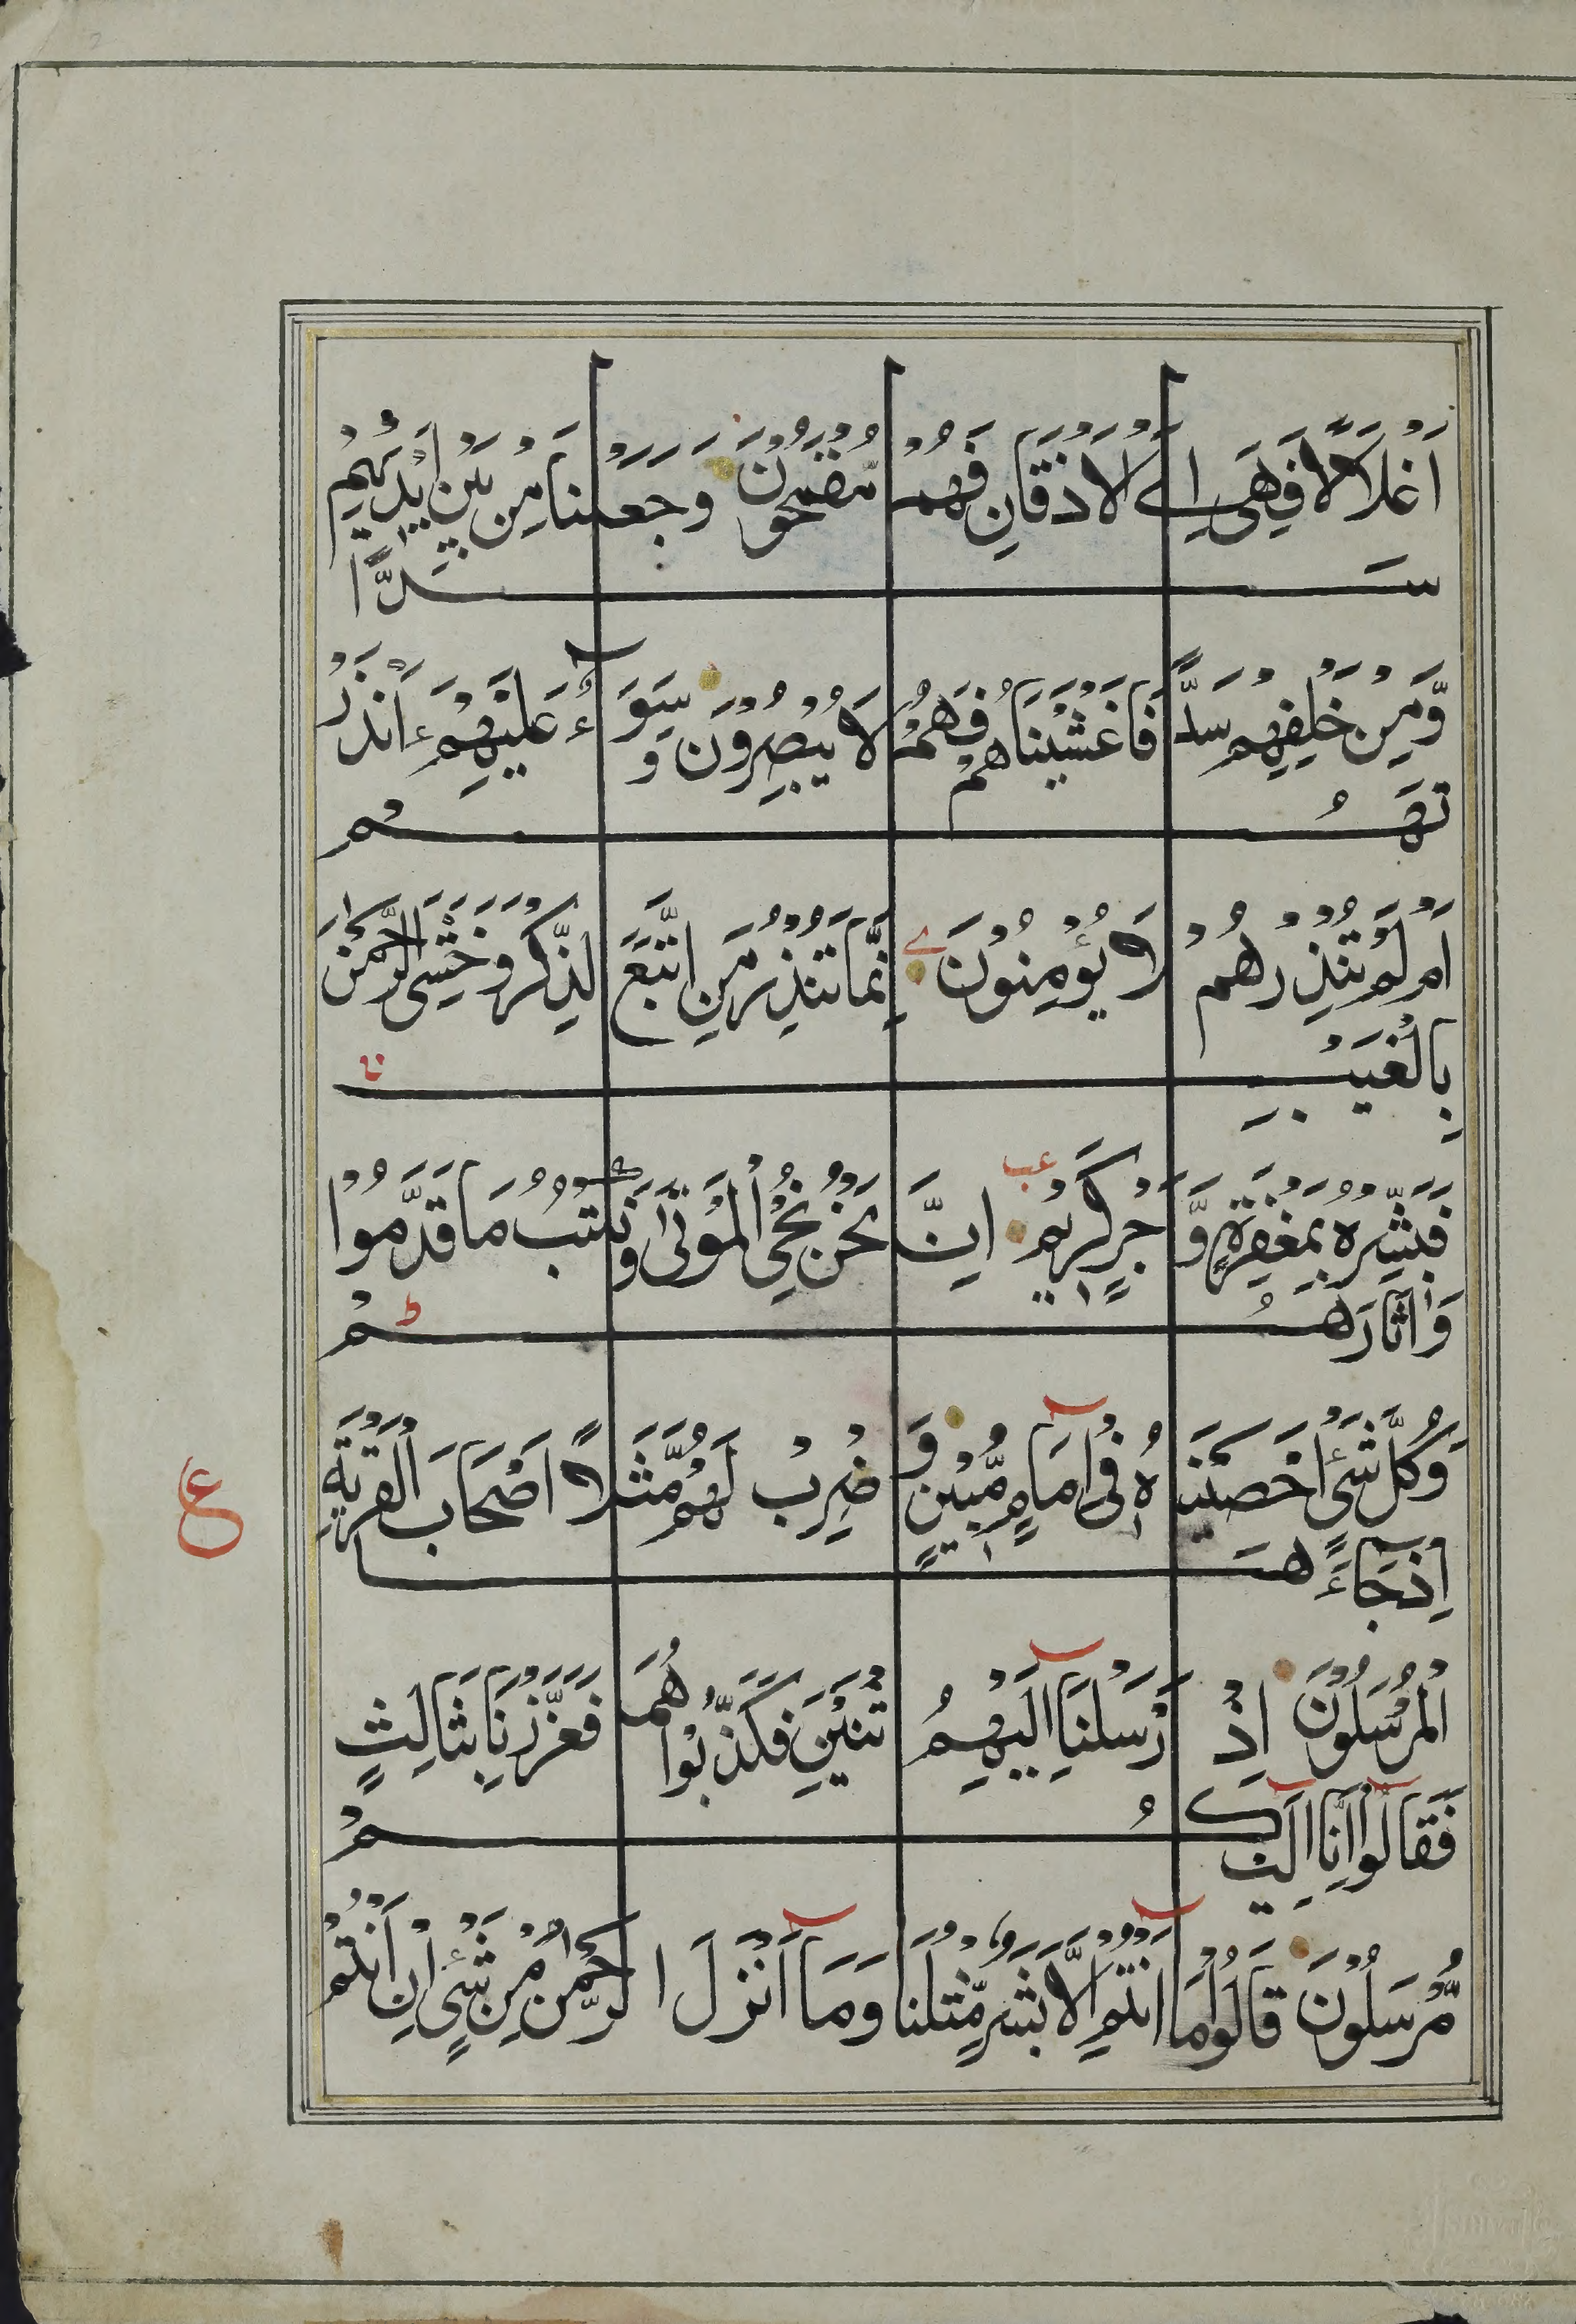 اَغْلَالًا فَهِىَ اِلَى الْاَذْقَانِ فَهُمْ مُّقْمَحُوْنَ وَجَعَلْنَا مِنْ بَيْنِ اَيْدِيْهِمْ
سَدًّا
وَّمِنْ خَلْفِهِمْ سَدًّا فَاَغْشَيْنَاهُمْ فَهُمْ لَا يُبْصِرُوْنَ وَسَوَآءٌ عَلَيْهِمْ ءَاَنْذَرْ
تَهُمْ
اَمْ لَمْ تُنْذِرْهُمْ لَا يُؤْمِنُوْنَ اِنَّمَا تُنْذِرُ مَنِ اتَّبَعَ الذِّكْرَ وَخَشِىَ الرَّحْمٰنَ
بِالْغَيْبِ
فَبَشِّرْهُ بِمَغْفِرَةٍ وَّاَجْرٍ كَرِيْمٍ اِنَّا نَحْنُ نُحْىِ الْمَوْتٰى وَنَكْتُبُ مَا قَدَّمُوْا
وَاٰثَارَهُمْ
وَكُلَّ شَىْءٍ اَحْصَيْنَاهُ فِىْ اِمَامٍ مُّبِيْنٍ وَاضْرِبْ لَهُمْ مَّثَلًا اَصْحَابَ الْقَرْيَةِ
اِذْ جَآءَهَا
ع
الْمُرْسَلُوْنَ اِذْ اَرْسَلْنَا اِلَيْهِمُ اثْنَيْنِ فَكَذَّبُوْاهُمَا فَعَزَّزْنَا بِثَالِثٍ
فَقَالُوْٓا اِنَّآ اِلَيْكُمْ
مُّرْسَلُوْنَ قَالُوْا مَآ اَنْتُمْ اِلَّا بَشَرٌ مِّثْلُنَا وَمَآ اَنْزَلَ الرَّحْمٰنُ مِنْ شَىْءٍ اِنْ اَنْتُمْ